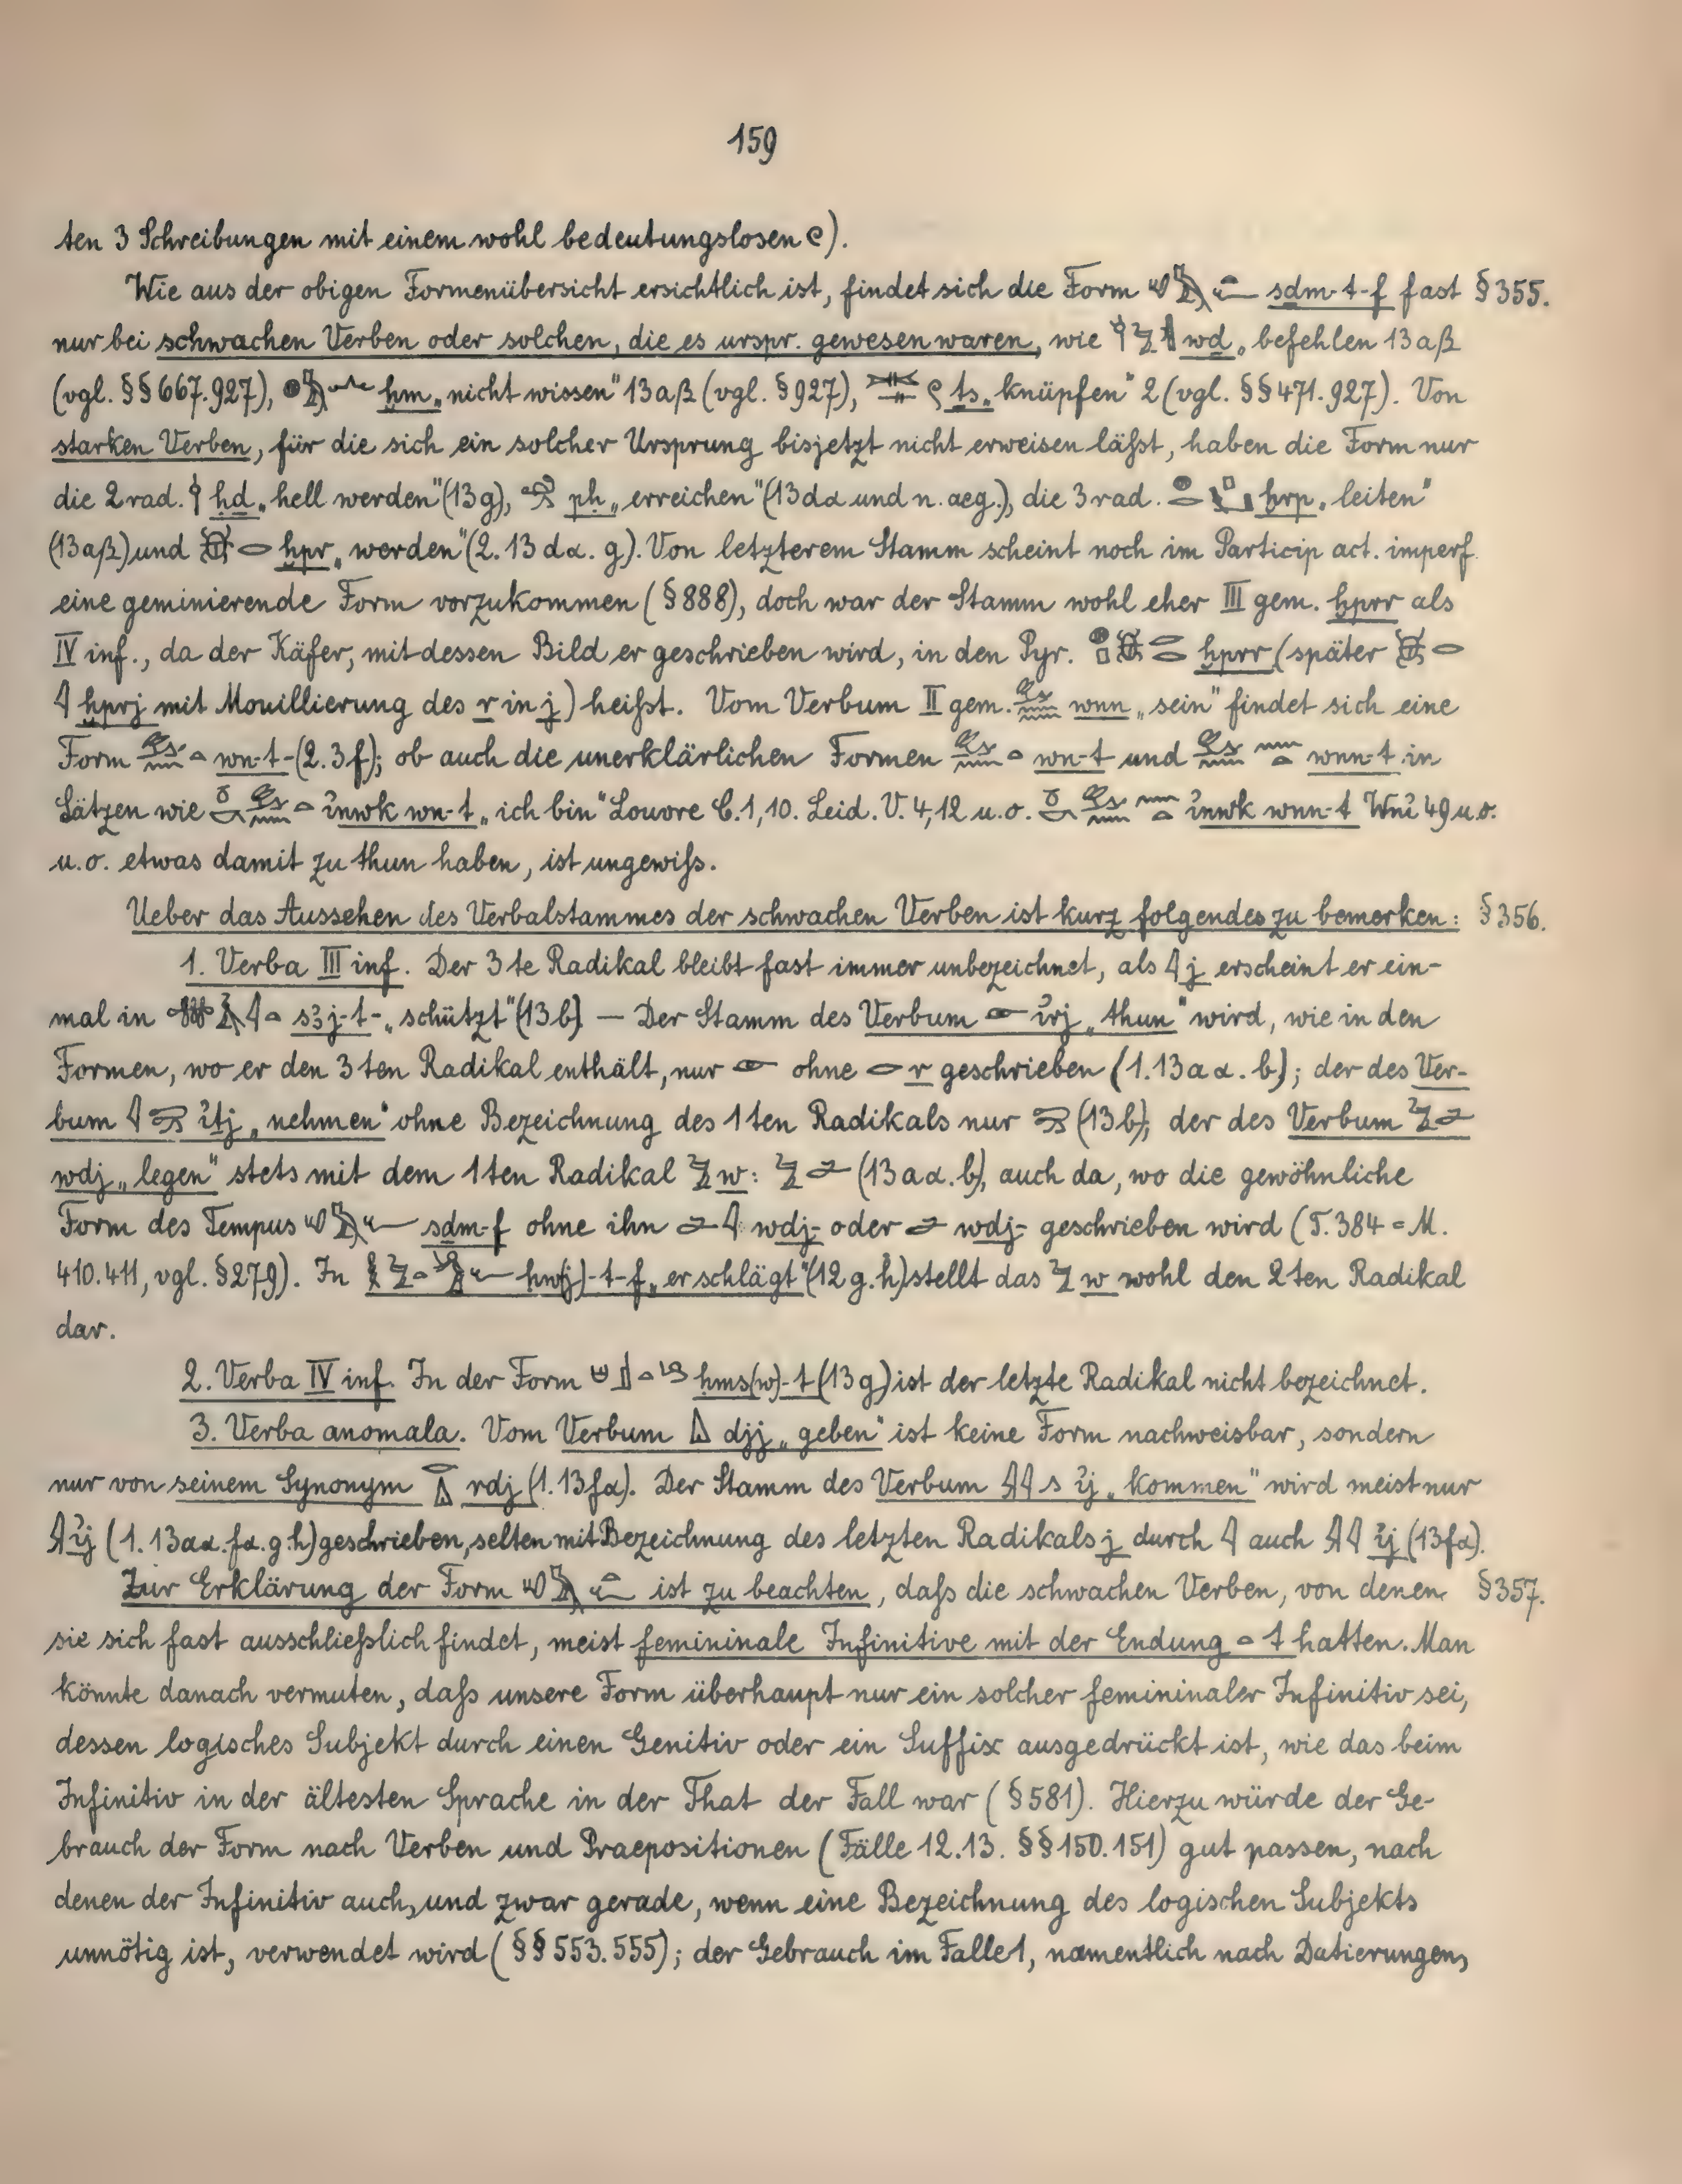 159
ten 3 Schreibungen mit einem wohl bedeutungslosen 𓏲).
Wie aus der obigen Formenübersicht ersichtlich ist, findet sich die Form sḏm-t-f fast § 355.
nur bei schwachen Verben oder solchen, die es urspr. gewesen waren, wie wḏ „befehlen 13aβ
(vgl. §§ 667. 927), ḫm „nicht wissen" 13aβ (vgl. § 927), ṯs „knüpfen" 2 (vgl. §§ 471. 927). Von
starken Verben, für die sich ein solcher Ursprung bisjetzt nicht erweisen läßt, haben die Form nur
die 2rad. ḥḏ „hell werden" (13g), pḥ „erreichen" (13dα und n. aeg.), die 3rad. ḫrp „leiten"
(13aβ) und ḫpr „werden" (2. 13dα. g). Von letzterem Stamm scheint noch im Particip act. imperf.
eine geminierende Form vorzukommen (§ 888), doch war der Stamm wohl eher III gem. ḫprr als
IV inf., da der Käfer, mit dessen Bild er geschrieben wird, in den Pyr. ḫprr (später
ḫprj mit Mouillierung des r in j) heißt. Vom Verbum II gem. wnn „sein" findet sich eine
Form wn-t- (2. 3f); ob auch die unerklärlichen Formen wn-t und wnn-t in
Sätzen wie ỉnwk wn-t „ich bin" Louvre C. 1, 10. Leid. V. 4, 12 u. o. ỉnwk wnn-t Wnỉ 49 u. o.
u. o. etwas damit zu thun haben, ist ungewiß.
Ueber das Aussehen des Verbalstammes der schwachen Verben ist kurz folgendes zu bemerken: § 356.
1. Verba III inf. Der 3te Radikal bleibt fast immer unbezeichnet, als 𓇋 j erscheint er ein-
mal in sꜣj-t- „schützt" (13b) — Der Stamm des Verbum 𓁹 ỉrj „thun" wird, wie in den
Formen, wo er den 3ten Radikal enthält, nur 𓁹 ohne 𓂋 r geschrieben (1. 13aα. b); der des Ver-
bum ỉṯj „nehmen" ohne Bezeichnung des 1ten Radikals nur (13b); der des Verbum
wdj „legen" stets mit dem 1ten Radikal 𓅱 w: (13aα. b), auch da, wo die gewöhnliche
Form des Tempus sḏm-f ohne ihn wdj- oder wdj- geschrieben wird (T. 384 = M.
410. 411, vgl. § 279). In ḥw(j)-t-f „er schlägt" (12g. h) stellt das 𓅱 w wohl den 2ten Radikal
dar.
2. Verba IV inf. In der Form ḥms(w)-t (13g) ist der letzte Radikal nicht bezeichnet.
3. Verba anomala. Vom Verbum djj „geben" ist keine Form nachweisbar, sondern
nur von seinem Synonym rdj (1. 13fα). Der Stamm des Verbum ỉj „kommen" wird meist nur
ỉj (1. 13aα. fα. g. h) geschrieben, selten mit Bezeichnung des letzten Radikals j durch 𓇋 auch ỉj (13fα).
Zur Erklärung der Form ist zu beachten, daß die schwachen Verben, von denen § 357.
sie sich fast ausschließlich findet, meist femininale Infinitive mit der Endung 𓏏 t hatten. Man
könnte danach vermuten, daß unsere Form überhaupt nur ein solcher femininaler Infinitiv sei,
dessen logisches Subjekt durch einen Genitiv oder ein Suffix ausgedrückt ist, wie das beim
Infinitiv in der ältesten Sprache in der That der Fall war (§ 581). Hierzu würde der Ge-
brauch der Form nach Verben und Praepositionen (Fälle 12. 13. §§ 150. 151) gut passen, nach
denen der Infinitiv auch, und zwar gerade, wenn eine Bezeichnung des logischen Subjekts
unnötig ist, verwendet wird (§§ 553. 555); der Gebrauch im Falle 1, namentlich nach Datierungen,